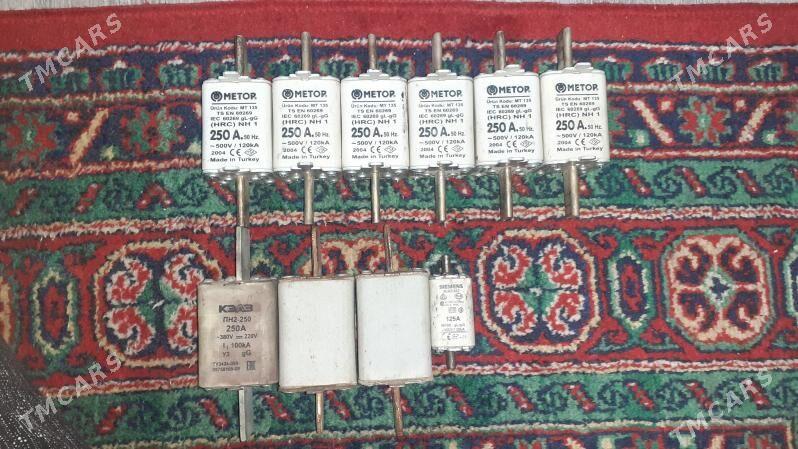 METOP
Ürün Kodu: MT 135
TS EN 60269
IEC 60269 gL-gG
(HRC) NH 1
250 A. 50 Hz.
~500V / 120kA
2004 CE
Made in Turkey
METOP
Ürün Kodu: MT 135
TS EN 60269
IEC 60269 gL-gG
(HRC) NH 1
250 A. 50 Hz.
~500V / 120kA
2004 CE
Made in Turkey
METOP
Ürün Kodu: MT 135
TS EN 60269
IEC 60269 gL-gG
(HRC) NH 1
250 A. 50 Hz.
~500V / 120kA
2004 CE
Made in Turkey
METOP
Ürün Kodu: MT 135
TS EN 60269
IEC 60269 gL-gG
(HRC) NH 1
250 A. 50 Hz.
~500V / 120kA
2004 CE
Made in Turkey
METOP
Ürün Kodu: MT 135
TS EN 60269
IEC 60269 gL-gG
(HRC) NH 1
250 A. 50 Hz.
~500V / 120kA
2004 CE
Made in Turkey
METOP
Ürün Kodu: MT 135
TS EN 60269
IEC 60269 gL-gG
(HRC) NH 1
250 A. 50 Hz.
~500V / 120kA
2004 CE
Made in Turkey
КЭАЗ
ПН2-250
250А
~380V 220V
I₁ 100kA
У3 gG
SIEMENS
125A
TMCARS
TMCARS
TMCARS
TMCARS
TMCARS